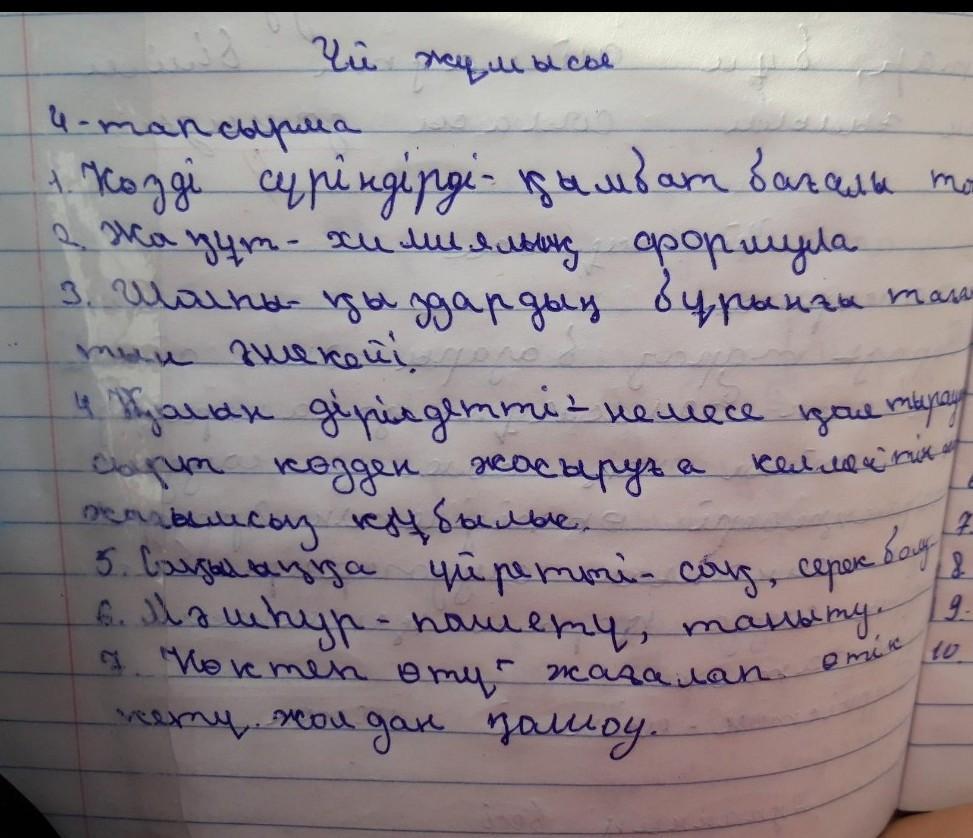 Үй жұмысы
4-тапсырма
1. Көзді сүріндірді- қымбат бағалы
2. Жақұт - химиялық формула
3. Шолпы- қыздардың бұрынғы таға
тын әшекейі.
4. Қолын дірілдетті - немесе қалтырау
көзден жасыруға келмейтін
жағымсыз құбылыс.
5. Сақылыққа үйретті - сақ, серек болу.
6. Мәшһүр - паш ету, таныту.
7. Көктеп өту - жағалап өтіп
кету. жолдан қашоу.
7
8
9.
10